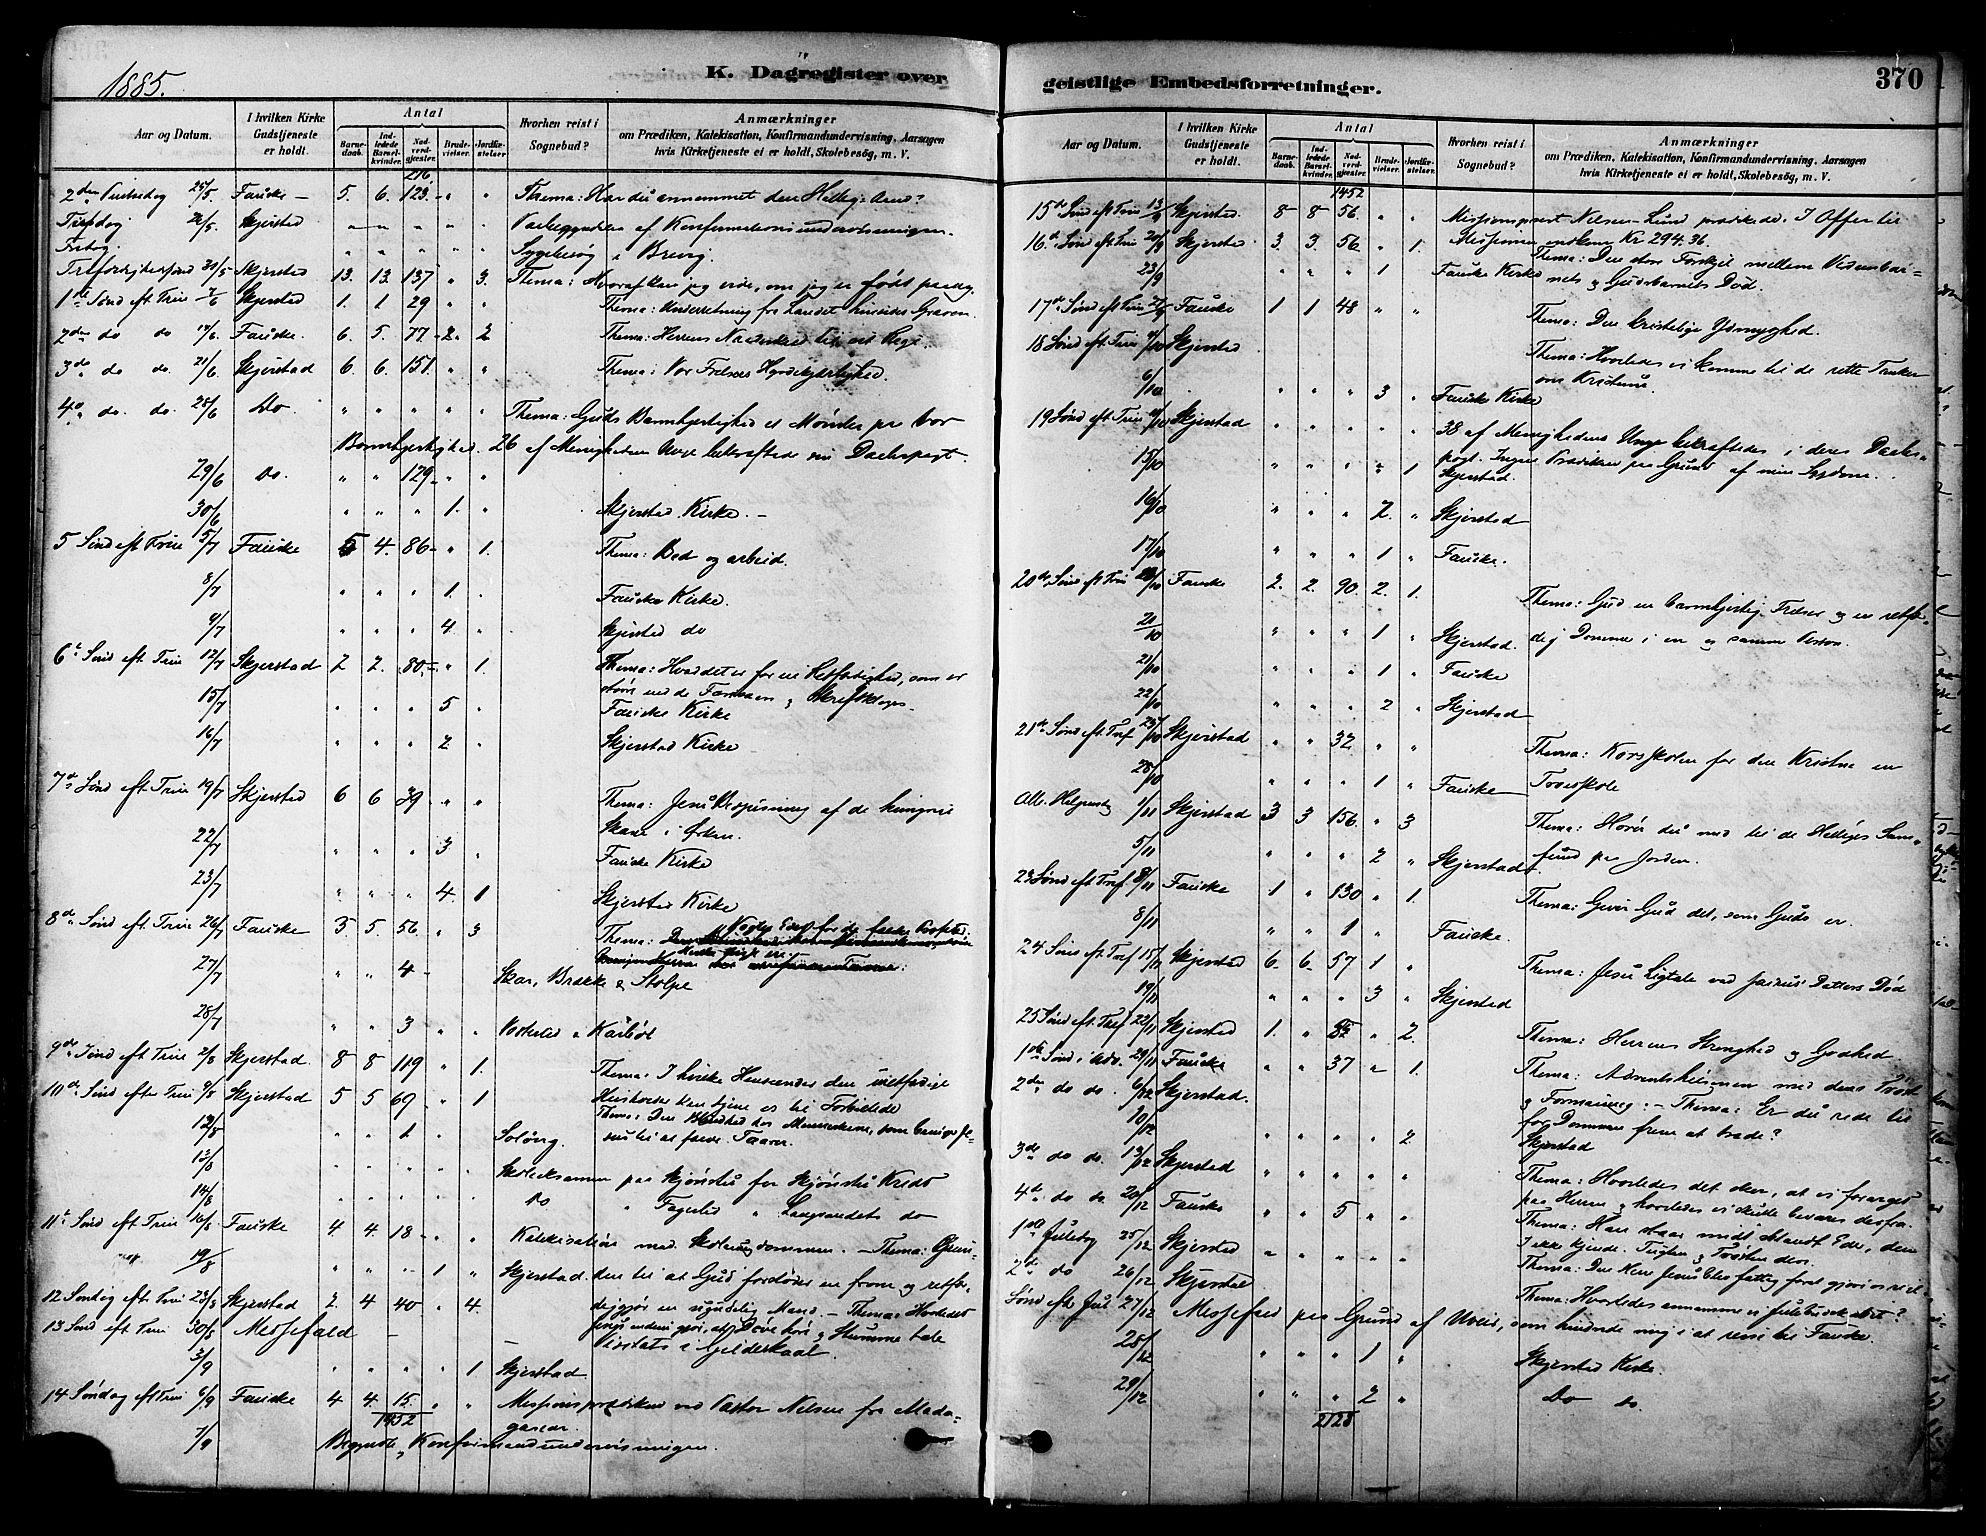 1885.
K. Dagregister over
Aar og Datum.
I hvilken Kirke Gudstjeneste er holdt.
Antal
Barnedaab.
Indledede Barselkvinder.
Nadverdgjester.
Brudevielser.
Jordfæstelser.
Hvorhen reist i Sognebud?
Anmærkninger
om Prædiken, Katekisation, Konfirmandundervisning, Aarsagen
hvis Kirketjeneste ei er holdt, Skolebesög, m. V.
216.
2den Pintsedag 25/5 Fauske 5. 6. 123 " " Thema: Har du annammet den Hellig-Aand?
Tirsdag 26/5 Skjerstad " " " " " af Konfirmationsundervisningen.
Fredag. " " " " Sygebesøg i Brevig.
Trefoldighedssønd 31/5 Skjerstad 13. 13. 137 " 3. Thema: Hvoraf kan jeg vide, om jeg er født paany.
1ste Sønd eft Trin 7/6 Skjerstad 1. 1 29 " " Thema: Underretning fra Landet hinsides Graven.
2den do do 14/6 Fauske. 6. 5. 77 2. 2 Thema: Herrens
3de do do. 21/6 Skjerstad 6. 6. 151. " " Thema: Vor Frelsers Hyrdekjærlighed.
4de do. do. 28/6 Do " " " " " Thema: Guds Barmhjertighed et Mønster for vor
Barmhjertighed. 26 af Menighedens Unge bekræftede sin Daabspagt.
29/6 Do. " " 129 " "
30/6 " " " 1. " Skjerstad Kirke. –
5 Sønd eft Trin 5/7 Fauske 5 4. 86 " 1. Thema: Bed og arbeid.
8/7 " " " 1. " Fauske Kirke.
9/7 " " " 4. " Skjerstad do
6te Sønd eft Trin 12/7 Skjerstad 2 2. 80 " 1. Thema: Hvad det er for en Retfærdighed, som er
større end de Farisæers og Skriftkloges
15/7 " " " 5 " Fauske Kirke
16/7 " " " 2 " Skjerstad Kirke
7de Sønd eft Trin 19/7 Skjerstad 6 6 39 " " Thema: Jesu Bespisning af de hungrige
Skarer i Ørken.
22/7 " " " 3 " Fauske Kirke
23/7 " " " 4. 1 Skjerstad Kirke
8de Sønd eft Trin 26/7 Fauske 5. 5. 56. " 3 Thema: Vogter Eder for de falske Profeter.
27/7 " " 4 Skar, Brække & Stolpe
28/7 " " 3 " " & Karbøl
9de Sønd eft Trin 2/8 Skjerstad. 8 8 119 " 1. Thema: I hvilke Henseender den uretfærdige
Husholder kan tjene os til Forbillede
10de Sønd efter Trin 9/8 Skjerstad 5 5 69 " 1 Thema: Den Blindhed hos Menneskene, som bevæger Je-
sus til at fælde Taarer.
12/8 " " 1. " " Soløng.
13/8 " " " " " Skoleexamen paa Skjønstu for Skjønstu Kreds
14/8 " " " " " Do " Fagerli " Langvandets do
11te Sønd eft Trin 16/8 Fauske 4. 4. 18 " " Katekisation med Skoleungdommen. – Thema: Grun-
19/8 " " " 1 " Skjerstad. den til at Gud fordømte en from og retfær-
12 Søndag eft. Trin 23/8 Skjerstad 2. 4 40 " 4. diggjør en ugudelig Mand. – Thema: Hvorledes
Jesus endnu gjør, at Døve høre & Stumme tale
13 Sønd eft Trin 30/8 Messefald – – Visitats i Gildeskaal.
3/9 " " " " 1 Skjerstad
14 Søndag eft Trin 6/9 Fauske 4 4 15. " " Missionsprædiken ved Pastor Nilsen fra Mada-
gascar.
1452
7/9 Begyndte Konfirmandundervisningen.
geistlige Embedsforretninger.
370
Aar og Datum.
I hvilken Kirke Gudstjeneste er holdt.
Antal
Barnedaab.
Indledede Barselkvinder.
Nadverdgjester.
Brudevielser.
Jordfæstelser.
Hvorhen reist i Sognebud?
Anmærkninger
om Prædiken, Katekisation, Konfirmandundervisning, Aarsagen
hvis Kirketjeneste ei er holdt, Skolebesög, m. V.
1452
15de Sønd eft Trin 13/9 Skjerstad. 8 8 56. " " Missionsprest Nilsen-Lund prædikede. I Offer til
16de Sønd eft Trin 20/9 Skjerstad 3. 3. 56 " 1. Missionen indkom Kr 294.36.
Thema: Den store Forskjel mellem Verdensbar-
23/9 " " " 1 Fauske Kirke nets & Gudsbarnets Død.
17de Sønd eft Trin 27/9 Fauske 1 1 48 " " Thema: Den kristelige Ydmyghed.
18 Sønd eft Trin 4/10 Skjerstad Thema: Hvorledes vi komme til de rette Tanker
om Kristus.
6/10 " " " 3 " Fauske Kirke
19 Sønd eft Trin 11/10 Skjerstad " " " " " 38 af Menighedens Unge bekræftedes i deres Daabs-
pagt. Ingen Prædiken paa Grund af min Sygdom.
15/10 " " " " 1 Skjerstad.
16/10 " " " 2. " Skjerstad
17/10 " " " 1 " Fauske.
20de Sønd eft Trin 18/10 Fauske 2. 2. 90. 2. 1. Thema: Gud en barmhjertig Frelser og en retfær-
dig Dommer i en og samme Person.
20/10 " " " 1 " Skjerstad.
21/10 " " " 1 " Fauske
22/10 " " " 2 " Skjerstad
21de Sønd eft. Tref 25/10 Skjerstad " " 32 " " Thema: Korsskolen for den Kristne en
Troesskole
28/10 " " " 1 " Fauske
Alle-Helgensdag 1/11 Skjerstad 3 3 156. " 3 Thema: Hører du med til de Helliges Sam-
fund paa Jorden.
5/11 " " " 2 " Skjerstad.
23 Sønd eft Tref 8/11 Fauske 1 " 130 " 1. Thema: Giver Gud det, som Guds er.
8/11 " " 1 " Fauske.
24 Sønd eft Tref 15/11 Skjerstad 6. 6. 57 1 " Thema: Jesu Ligtale ved Jairus' Datters Død
19/11 " " " 3 " Skjerstad
25 Sønd eft. Tref 22/11 Skjerstad 1. " " 2. Thema: Herrens Strenghed og Godhed
1ste Sønd i Adv. 29/11 Fauske " " 37 " 1. Thema: Adventshilsenen med dens Trøst
& Formaning. – Thema: Er du rede til
2den do do. 6/12 Skjerstad. for Dommeren frem at træde?
10/12 " " " " 2. Skjerstad
3de do do. 13/12 Skjerstad " " " " " Thema: Hvorledes det sker, at vi forarges
paa Herren & hvorledes vi skulde bevares derfra.
4de do do 20/12 Fauske " " 5 " " Thema: Han staar midt iblandt Eder, den
I ikke kjende. & Trøsten deri.
1ste Juledag 25/12 Skjerstad " " " " " Thema: Den Herr Jesus blev fattig for at gjøre os
2den do 26/12 Skjerstad Thema: Hvorledes annamme vi Julebudskabet?
Sønd eft Jul 27/12 Messefald paa Grund af Uveir, som hindrede mig i at reise til Fauske.
28/12 " " " 1 " Skjerstad Kirke.
29/12 " " " 2 " Do do.
2128